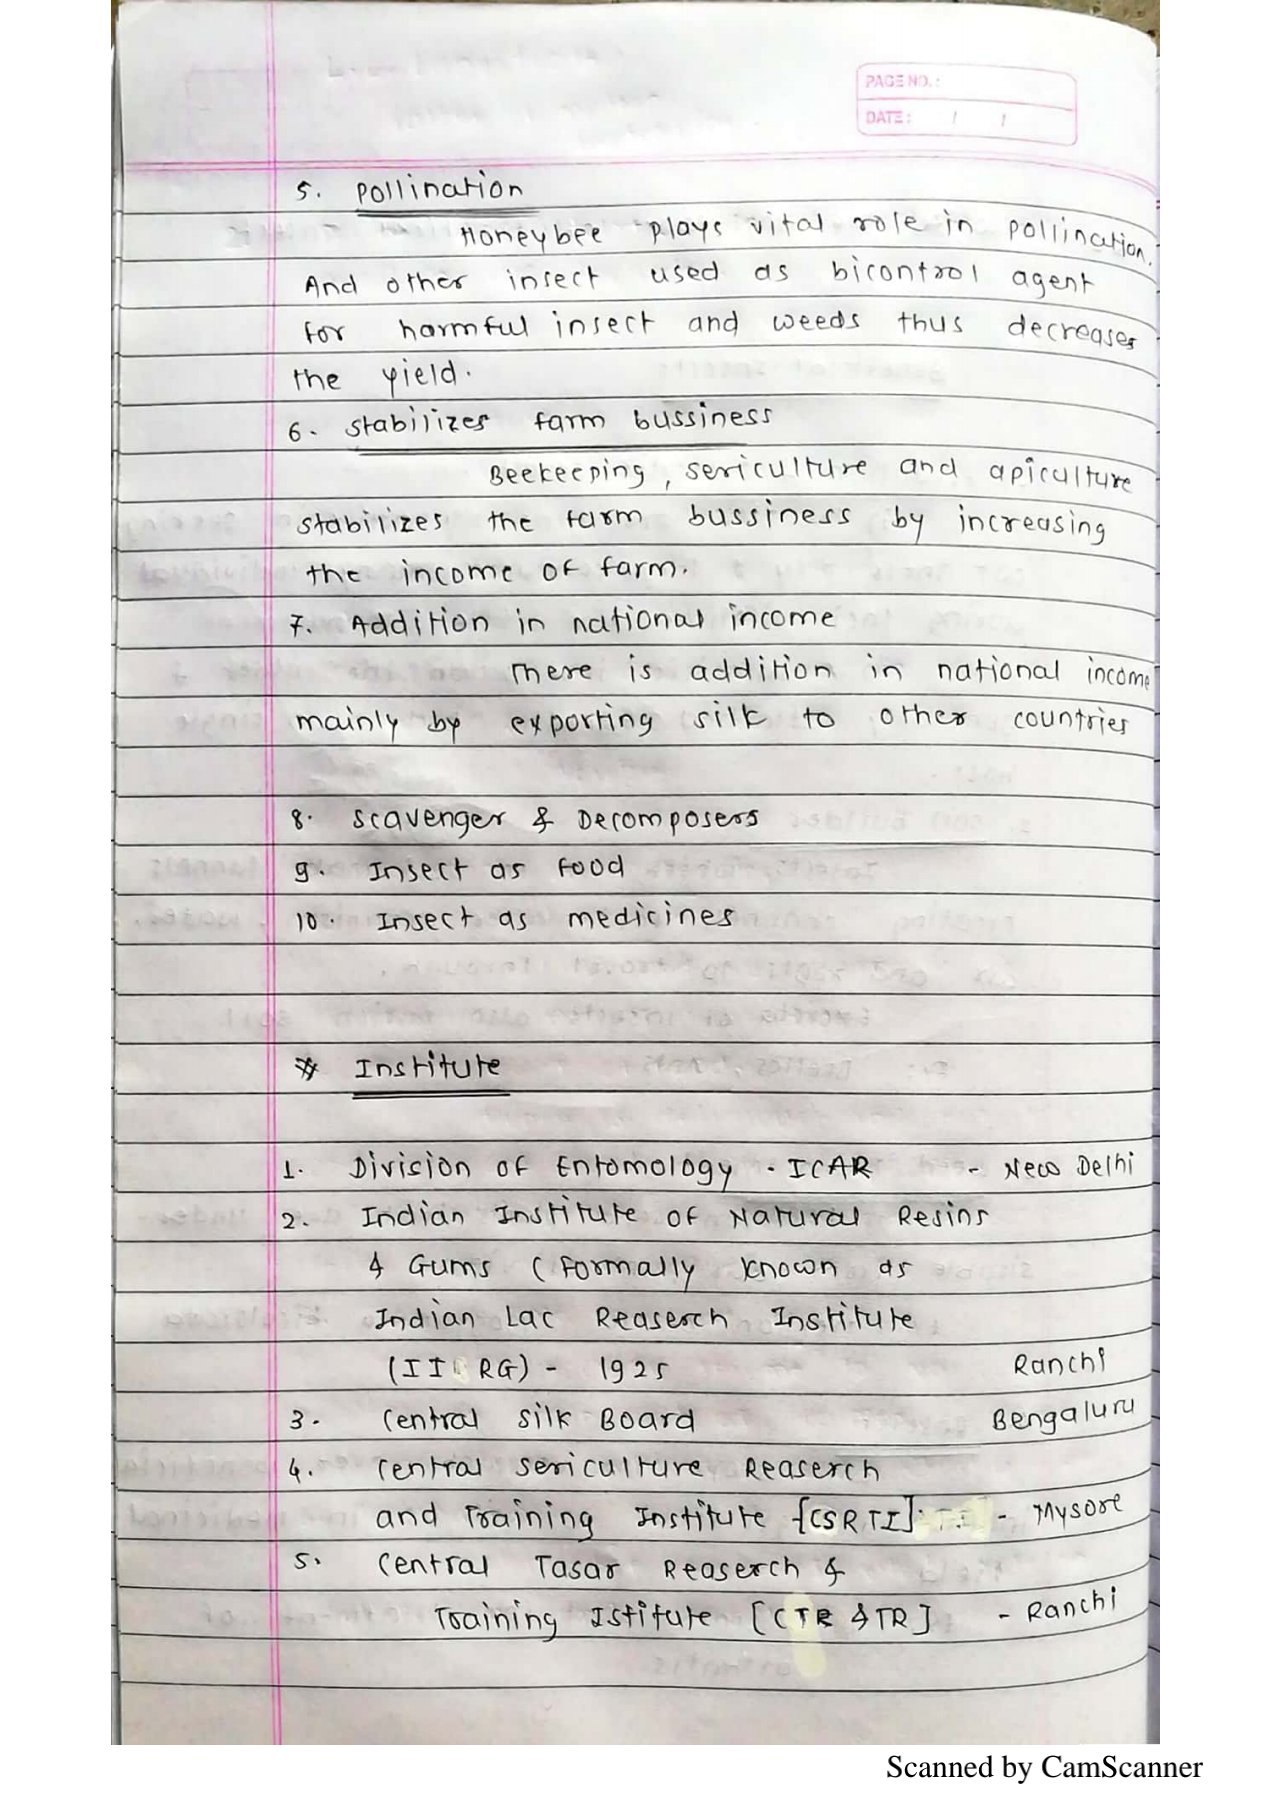 PAGE NO.:
DATE: / /
5. Pollination
Honeybee plays vital role in pollination.
And other insect used as bicontrol agent
for harmful insect and weeds thus decreases
the yield.
6. stabilizes farm bussiness
Beekeeping, sericulture and apiculture
stabilizes the farm bussiness by increasing
the income of farm.
7. Addition in national income
There is addition in national income
mainly by exporting silk to other countries
8. Scavenger & Decomposers
9. Insect as food
10. Insect as medicines
* Institute
1. Division of Entomology - ICAR - New Delhi
2. Indian Institute of Natural Resins
& Gums (formally known as
Indian Lac Reaserch Institute
(II RG) - 1925 Ranchi
3. Central Silk Board Bengaluru
4. Central sericulture Reaserch
and Training Institute [CSRTI] - Mysore
5. Central Tasar Reaserch &
Training Istitute [CTR & TR] - Ranchi
Scanned by CamScanner